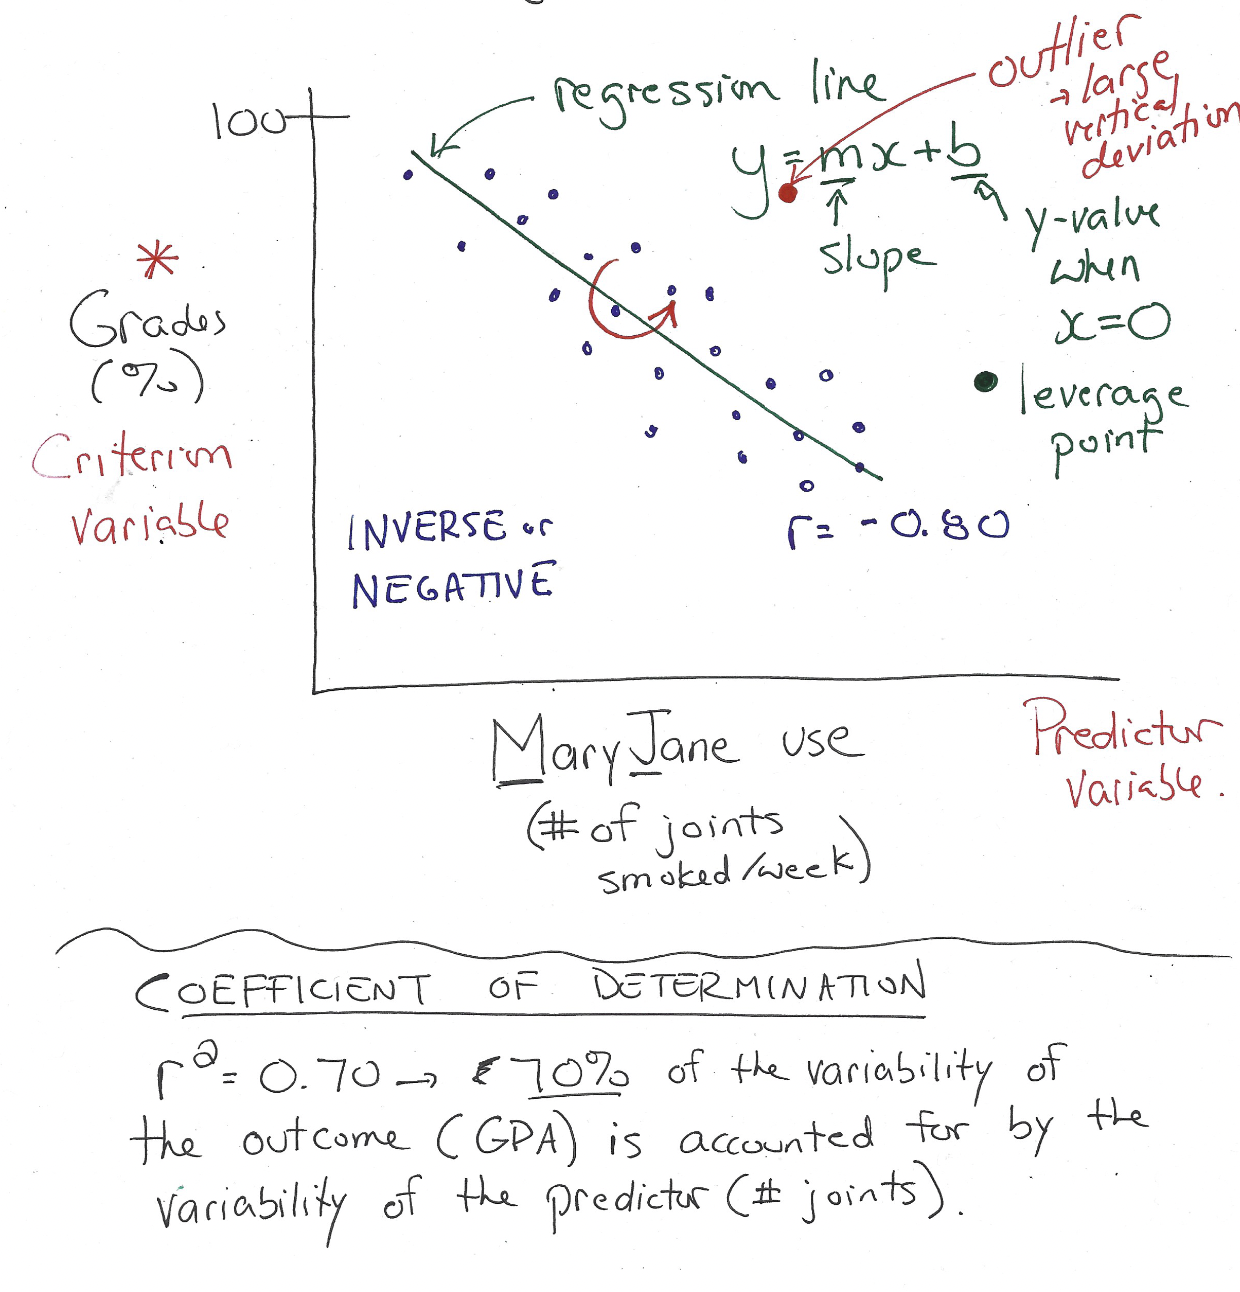 regression line
outlier
→ large
vertical
deviation
100
y = mx + b
slope
y-value
when
x = 0
* Grades
(%)
Criterion
variable
leverage
point
r = -0.80
INVERSE or
NEGATIVE
Mary Jane use
(# of joints
smoked/week)
Predictor
variable.
COEFFICIENT OF DETERMINATION
r² = 0.70 → 70% of the variability of
the outcome (GPA) is accounted for by the
variability of the predictor (# joints).